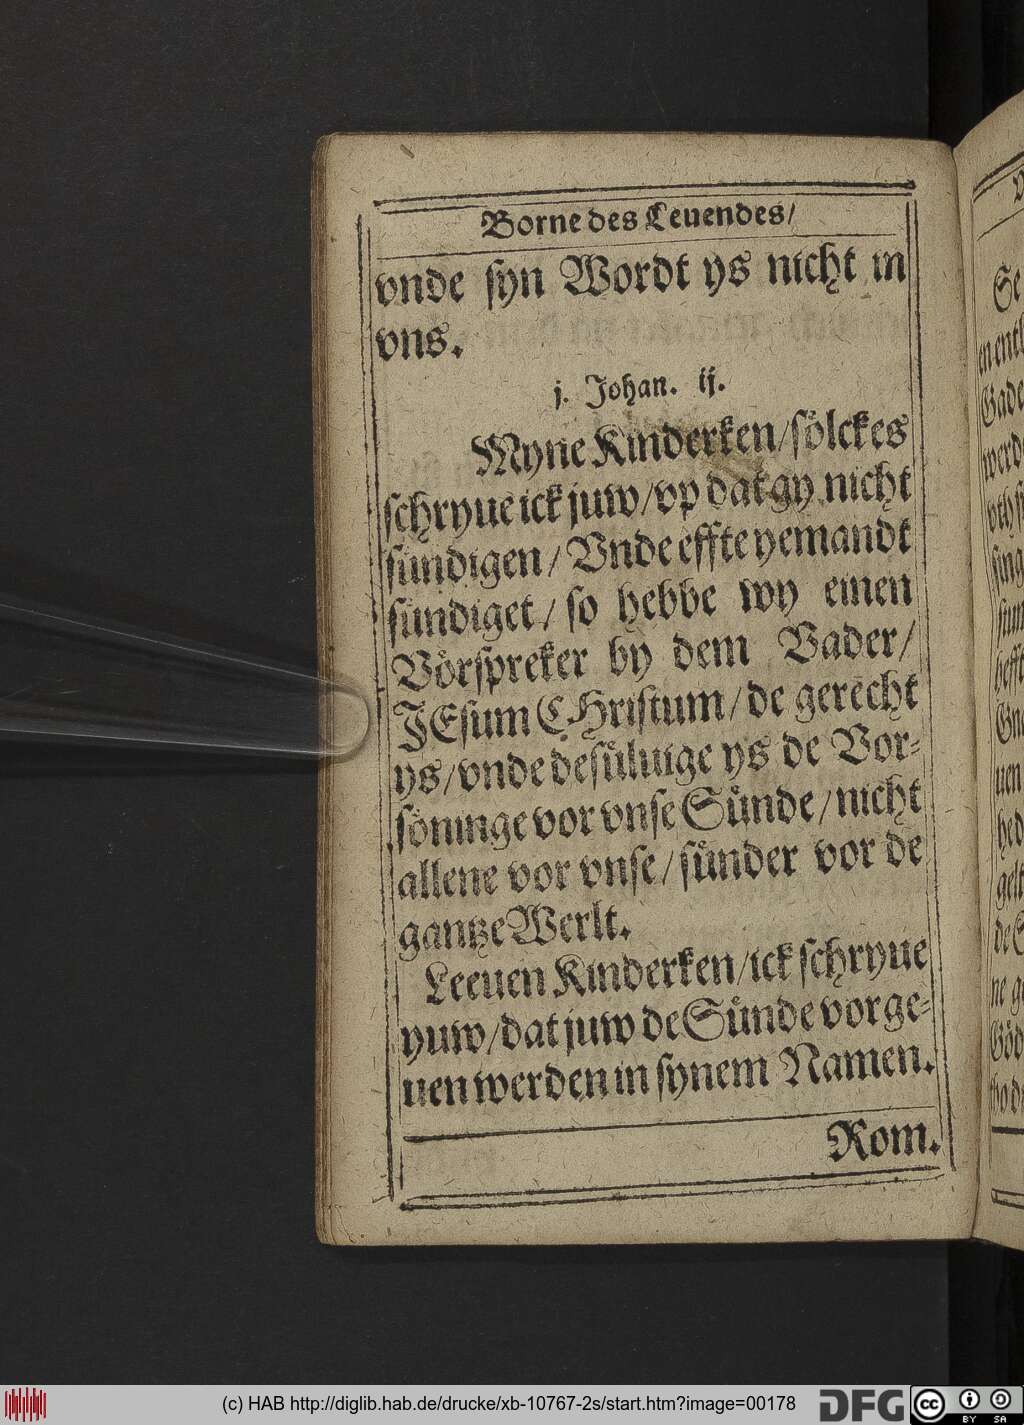 Borne des Leuendes/
vnde syn Wordt ys nicht in
vns.
j. Johan. ij.
Myne Kinderken/sölckes
schryue ick juw/vp dat gy nicht
sündigen/ Vnde effte yemandt
sündiget/ so hebbe wy einen
Vörspreker by dem Vader/
JEsum CHristum/de gerecht
ys/vnde desüluige ys de Vor-
söninge vor vnse Sünde/nicht
allene vor vnse/sünder vor de
gantze Werlt.
Leeuen Kinderken/ick schryue
yuw/dat juw de Sünde vorge-
uen werden in synem Namen.
Rom.
(c) HAB http://diglib.hab.de/drucke/xb-10767-2s/start.htm?image=00178
DFG
cc
BY SA